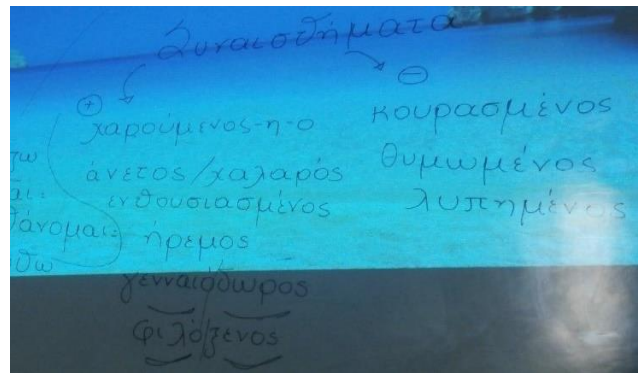 Συναισθήματα
⊕
χαρούμενος-η-ο
άνετος/χαλαρός
ενθουσιασμένος
ήρεμος
γενναιόδωρος
φιλόξενος
⊖
κουρασμένος
θυμωμένος
λυπημένος